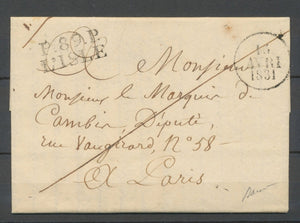 P. 89. P.
L'ISLE
15
AVRI
1831
Monsieur
Monsieur le Marquis de
Cambis, Député,
rue Vaugirard, N° 58
A Paris